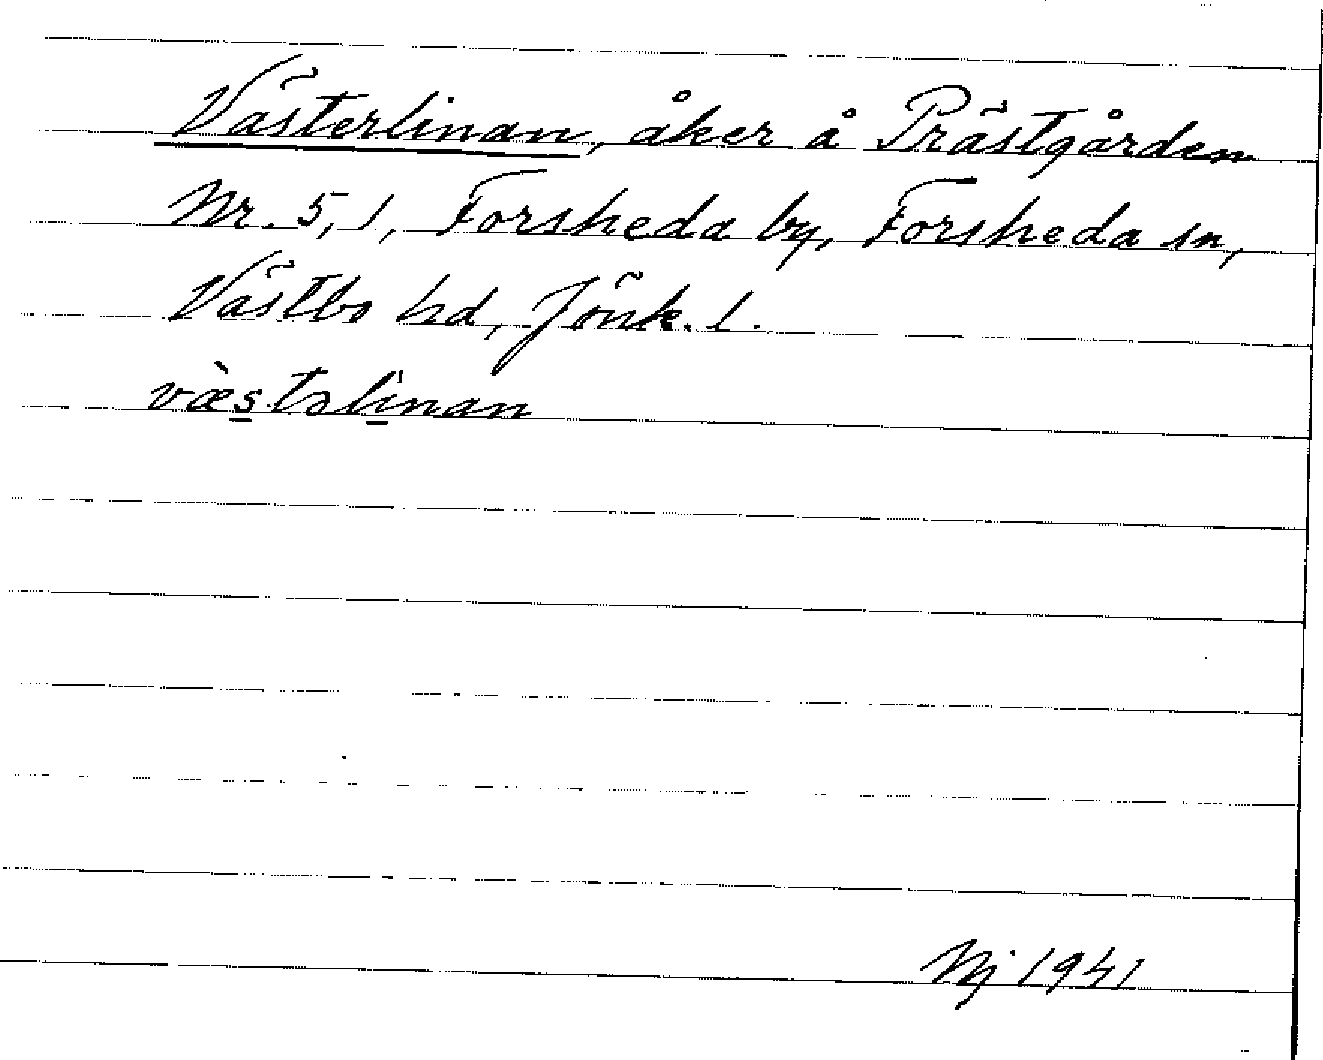 Västerlinan, åker å Prästgården
Nr. 5,1, Forsheda by, Forsheda sn,
Västbo hd, Jönk. l.
væ̀s̲təl̲ìnan
Nj 1941